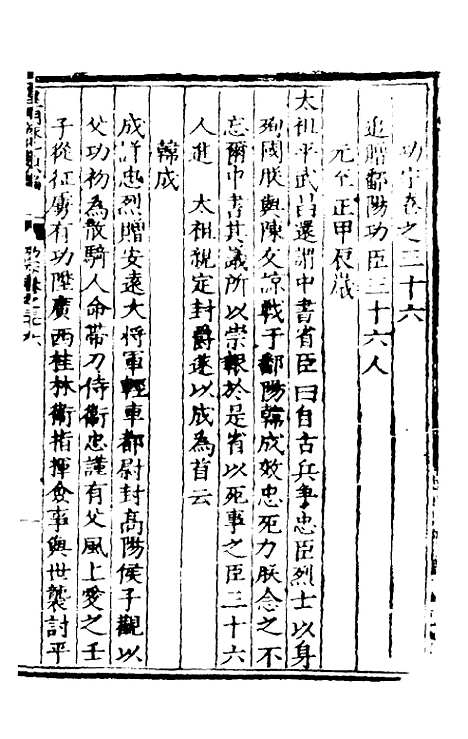 功字卷之三十六
追贈鄱陽功臣三十六人
元至正甲辰歲
太祖平武昌還謂中書省臣曰自古兵爭忠臣烈士以身
殉國朕與陳友諒戰于鄱陽韓成效忠死力朕念之不
忘爾中書其議所以崇報於是省以死事之臣三十六
人進 太祖親定封爵遂以成為首云
韓成
成許忠烈贈安遠大將軍輕車都尉封高陽侯子觀以
父功初為散騎人命帶刀侍衞忠謹有父風上愛之壬
子從征虜有功陞廣西桂林衞指揮僉事與世襲討平